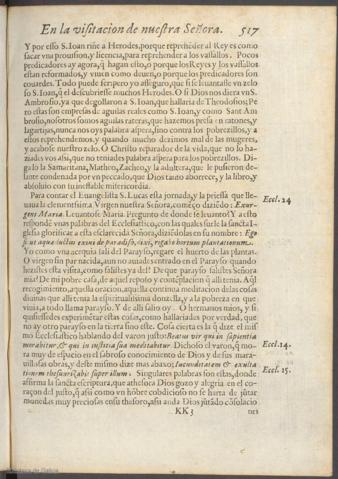 En la visitacion de nuestra Señora. 517
Y por esso S. Ioan riñe a Herodes, porque reprehẽder al Rey es como
sacar vna prouision, y licencia, para reprehender a los vassallos. Pocos
predicadores ay agora, q̃ hagan esto, o porque los Reyes y los vassallos
estan reformados, y viuen como deuen, o porque los predicadores son
couardes. Todo puede ser: pero yo asseguro, que si se leuantasse vn zelo
so S. Ioan, q̃ el descubriesse muchos Herodes. O si Dios nos diera vn S.
Ambrosio, ya que degollaron a S. Ioan, que hallaria de Theodosios: Pe
ro estas son empresas de aguilas reales como S. Ioan, y como Sant Am
brosio, nosotros somos aguilas rateras, que hazemos presa en ratones, y
lagartijas, nunca nos oys palabra aspera, sino contra los pobrezillos, y a
essos reprehendemos, y quando mucho dezimos mal de las mugeres,
y acabose nuestro zelo. O Christo reparador de la vida, que no lo ha-
ziades vos assi, que no teniades palabra aspera para los pobrezillos. Di-
galo la Samaritana, Matheo, Zacheo, y la adultera, que le pusieron de-
lante condenada por vn peccado, que Dios tanto aborrece, y la libro, y
absoluio con su inefable misericordia.
Para contar el Euangelista S. Lucas esta jornada, y la priessa que lle-
uaua la sereníssima Virgen nuestra Señora, comẽço diziẽdo: Exur- Eccl. 24
gens Maria. Leuantose Maria. Pregunto de donde se leuanto? Y a esto
respondẽ vnas palabras del Ecclesiastico, con las quales suele la sancta I-
glesia glorificar a esta esclarecida Señora, diziẽdolas en su nombre: Ego
si ut aque ductus exiui de paradiso, dixi, rigabo hortum plantationum.
Yo como vna acequia sali del Parayso, regare el huerto de las plantas.
O virgen sin par nacida, aun no auiades entrado en el Parayso quando
hezistes esta visita, como salistes ya del? De que parayso salistes Señora
mia? De mi pobre casa, de aquel reposo y contẽplacion q̃ alli tenia. Aq̃l
recogimiento, aquella oracion, aquella continua meditacion de las cosas
diuinas que alli tenia la espiritualissima donzella, y a la pobreza en que
viuia, a todo llama parayso. Y de alli salio oy. O hermanos mios, y si
quisiessedes experimẽtar estas cosas, como hallariades por verdad, que
no ay otro parayso en la tierra sino este. Cosa cierta es la q̃ dize el mis
mo Ecclesiastico hablando del varon justo: Beatus vir qui in sapientia
morabitur, & qui in iustitia sua meditabitur. Dichoso el varon, q̃ mo- Eccl. 14.
ra muy de espacio en el sabroso conocimiento de Dios y de sus mara-
uillosas obras, y deste mismo dize mas abaxo: Iucunditatem & exulta
tionem thesaurizabit super illum. Singulares palabras son estas, donde Eccl. 15.
affirma la sancta escriptura, que athesora Dios gozo y alegria en el co-
raçon del justo, q̃ assi como vn hõbre cobdicioso no se harta de jũtar
monedas muy preciosas en su thesoro, assi anda Dios jũtãdo cõsolacio
KK 3 nes